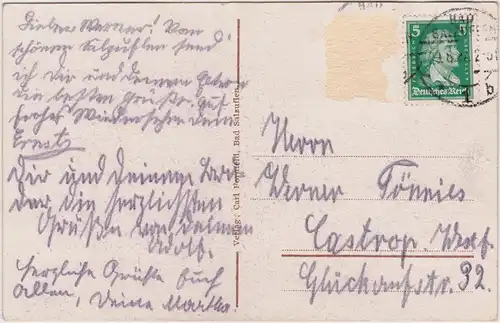 Lieber Werner! Vom
schönen Salzuflen send
ich Dir und deinen Eltern
die besten Grüße. Auf
frohes Wiedersehen Dein
Ernst
Dir und Deinem
die herzlichsten
Grüße von Deinem
Adolf.
Herzliche Grüße Euch
allen, Deine Martha.
Verlag: Carl Bad Salzuflen
5
Deutsches Reich
BAD
b
Herrn
Werner Tönnies
Castrop. Westf.
Glückaufstr. 32.